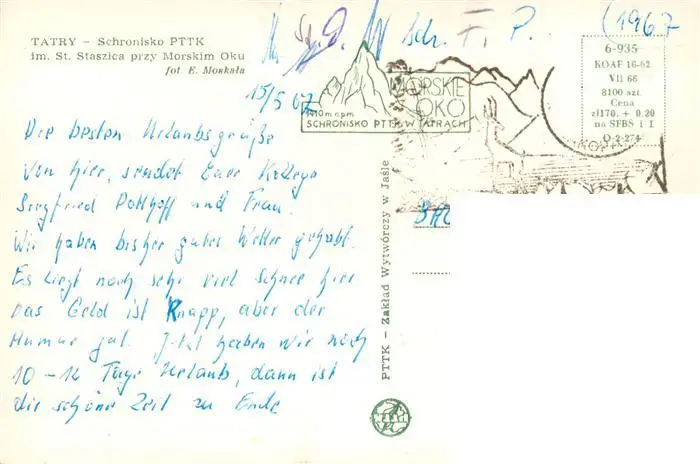 (1967
TATRY – Schronisko PTTK
im. St. Staszica przy Morskim Oku
fot E. Moskała
15/5 67
MORSKIE
OKO
1410 m npm
SCHRONISKO PTTK W TATRACH
6-935
KOAF 16-62
VII 66
8100 szt.
Cena
zł 1.70. + 0.20
na SFBS i I
O-2-274
Die besten Urlaubsgrüße
von hier, sendet Euer Kollege
Siegfried Potthoff und Frau.
Wir haben bisher gutes Wetter gehabt.
Es liegt noch sehr viel Schnee hier
Das Geld ist Knapp, aber der
Humor gut. Jetzt haben wir noch
10 – 12 Tage Urlaub, dann ist
die schöne Zeit zu Ende
PTTK – Zakład Wytwórczy w Jaśle